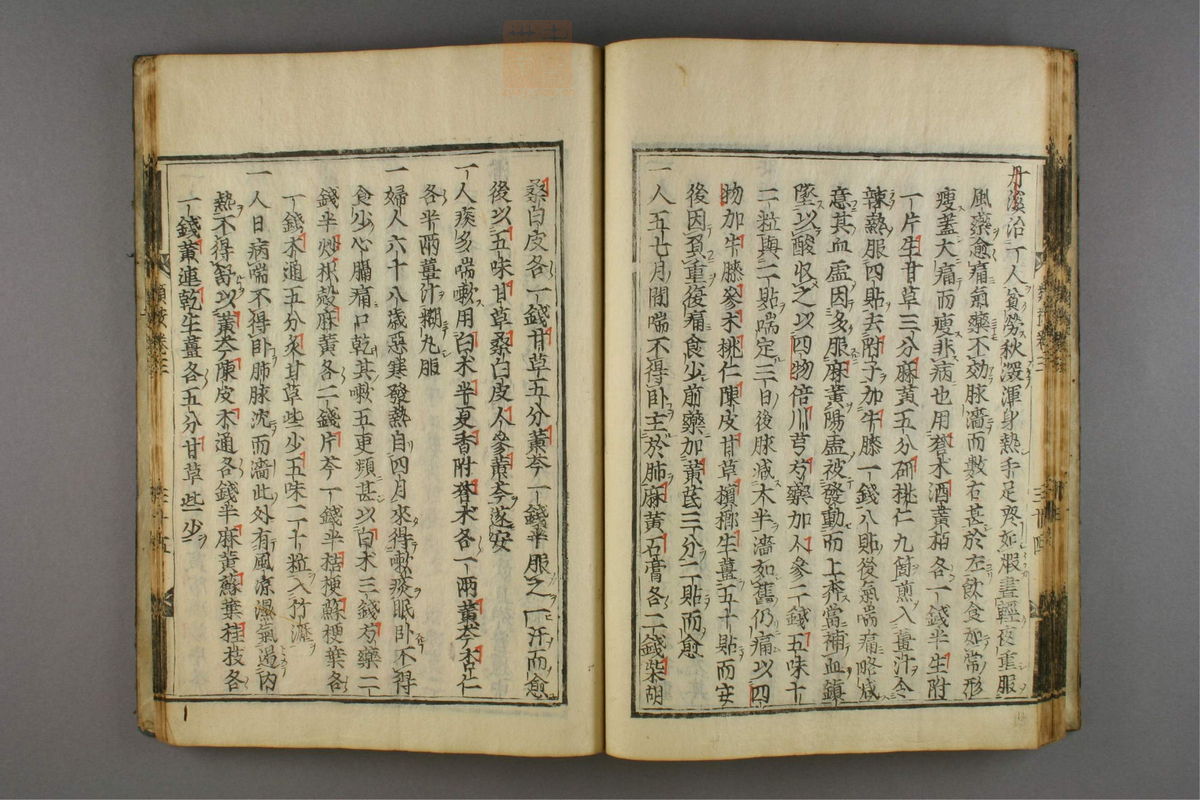 丹溪治一人貧勞秋深渾身熱手足疼如煆晝輕夜重服
風藥愈痛氣藥不効脉濇而數右甚於左飲食如常形
瘦蓋大痛而瘦非病也用蒼朮酒黃栢各一錢半生附
一片生甘草三分麻黃五分研桃仁九箇煎入薑汁令
辣熱服四貼去附子加牛膝一錢八貼後氣喘痛略減
意其血虛因多服麻黃陽虛被發動而上奔當補血鎮
墜以酸収之以四物倍川芎芍藥加人參二錢五味十
二粒與二貼喘定三日後脉減大半濇如舊仍痛以四
物加牛膝參朮桃仁陳皮甘草檳榔生薑五十貼而安
後因負重復痛食少前藥加黃芪三分二貼而愈
一人五七月間喘不得卧主於肺麻黃石膏各二錢柴胡
桑白皮各一錢甘草五分黃芩一錢半服之一汗而愈
後以五味甘草桑白皮人參黃芩遂安
一人痰多喘嗽用白朮半夏香附蒼朮各一兩黃芩杏仁
各半兩薑汁糊丸服
一婦人六十八歲惡寒發熱自四月來得嗽痰眠卧不得
食少心膈痛口乾其嗽五更頻甚以白朮三錢芍藥二
錢半炒枳殻麻黃各二錢片芩一錢半桔梗蘇梗葉各
一錢木通五分炙甘草些少五味二十粒入竹瀝
一人日病喘不得卧肺脉沈而濇此外有風凉濕氣遏内
熱不得舒以黃芩陳皮木通各錢半麻黃蘇葉桂枝各
一錢黃連乾生薑各五分甘草些少